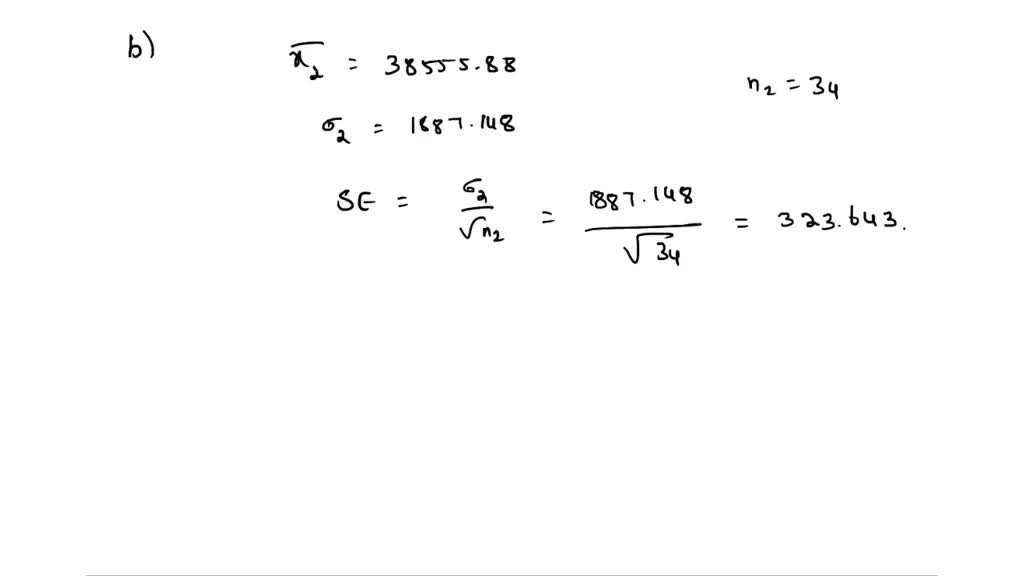 b)
x̄₂ = 38555.88
n₂ = 34
σ₂ = 1887.148
SE = σ₂/√n₂ = 1887.148/√34 = 323.643.